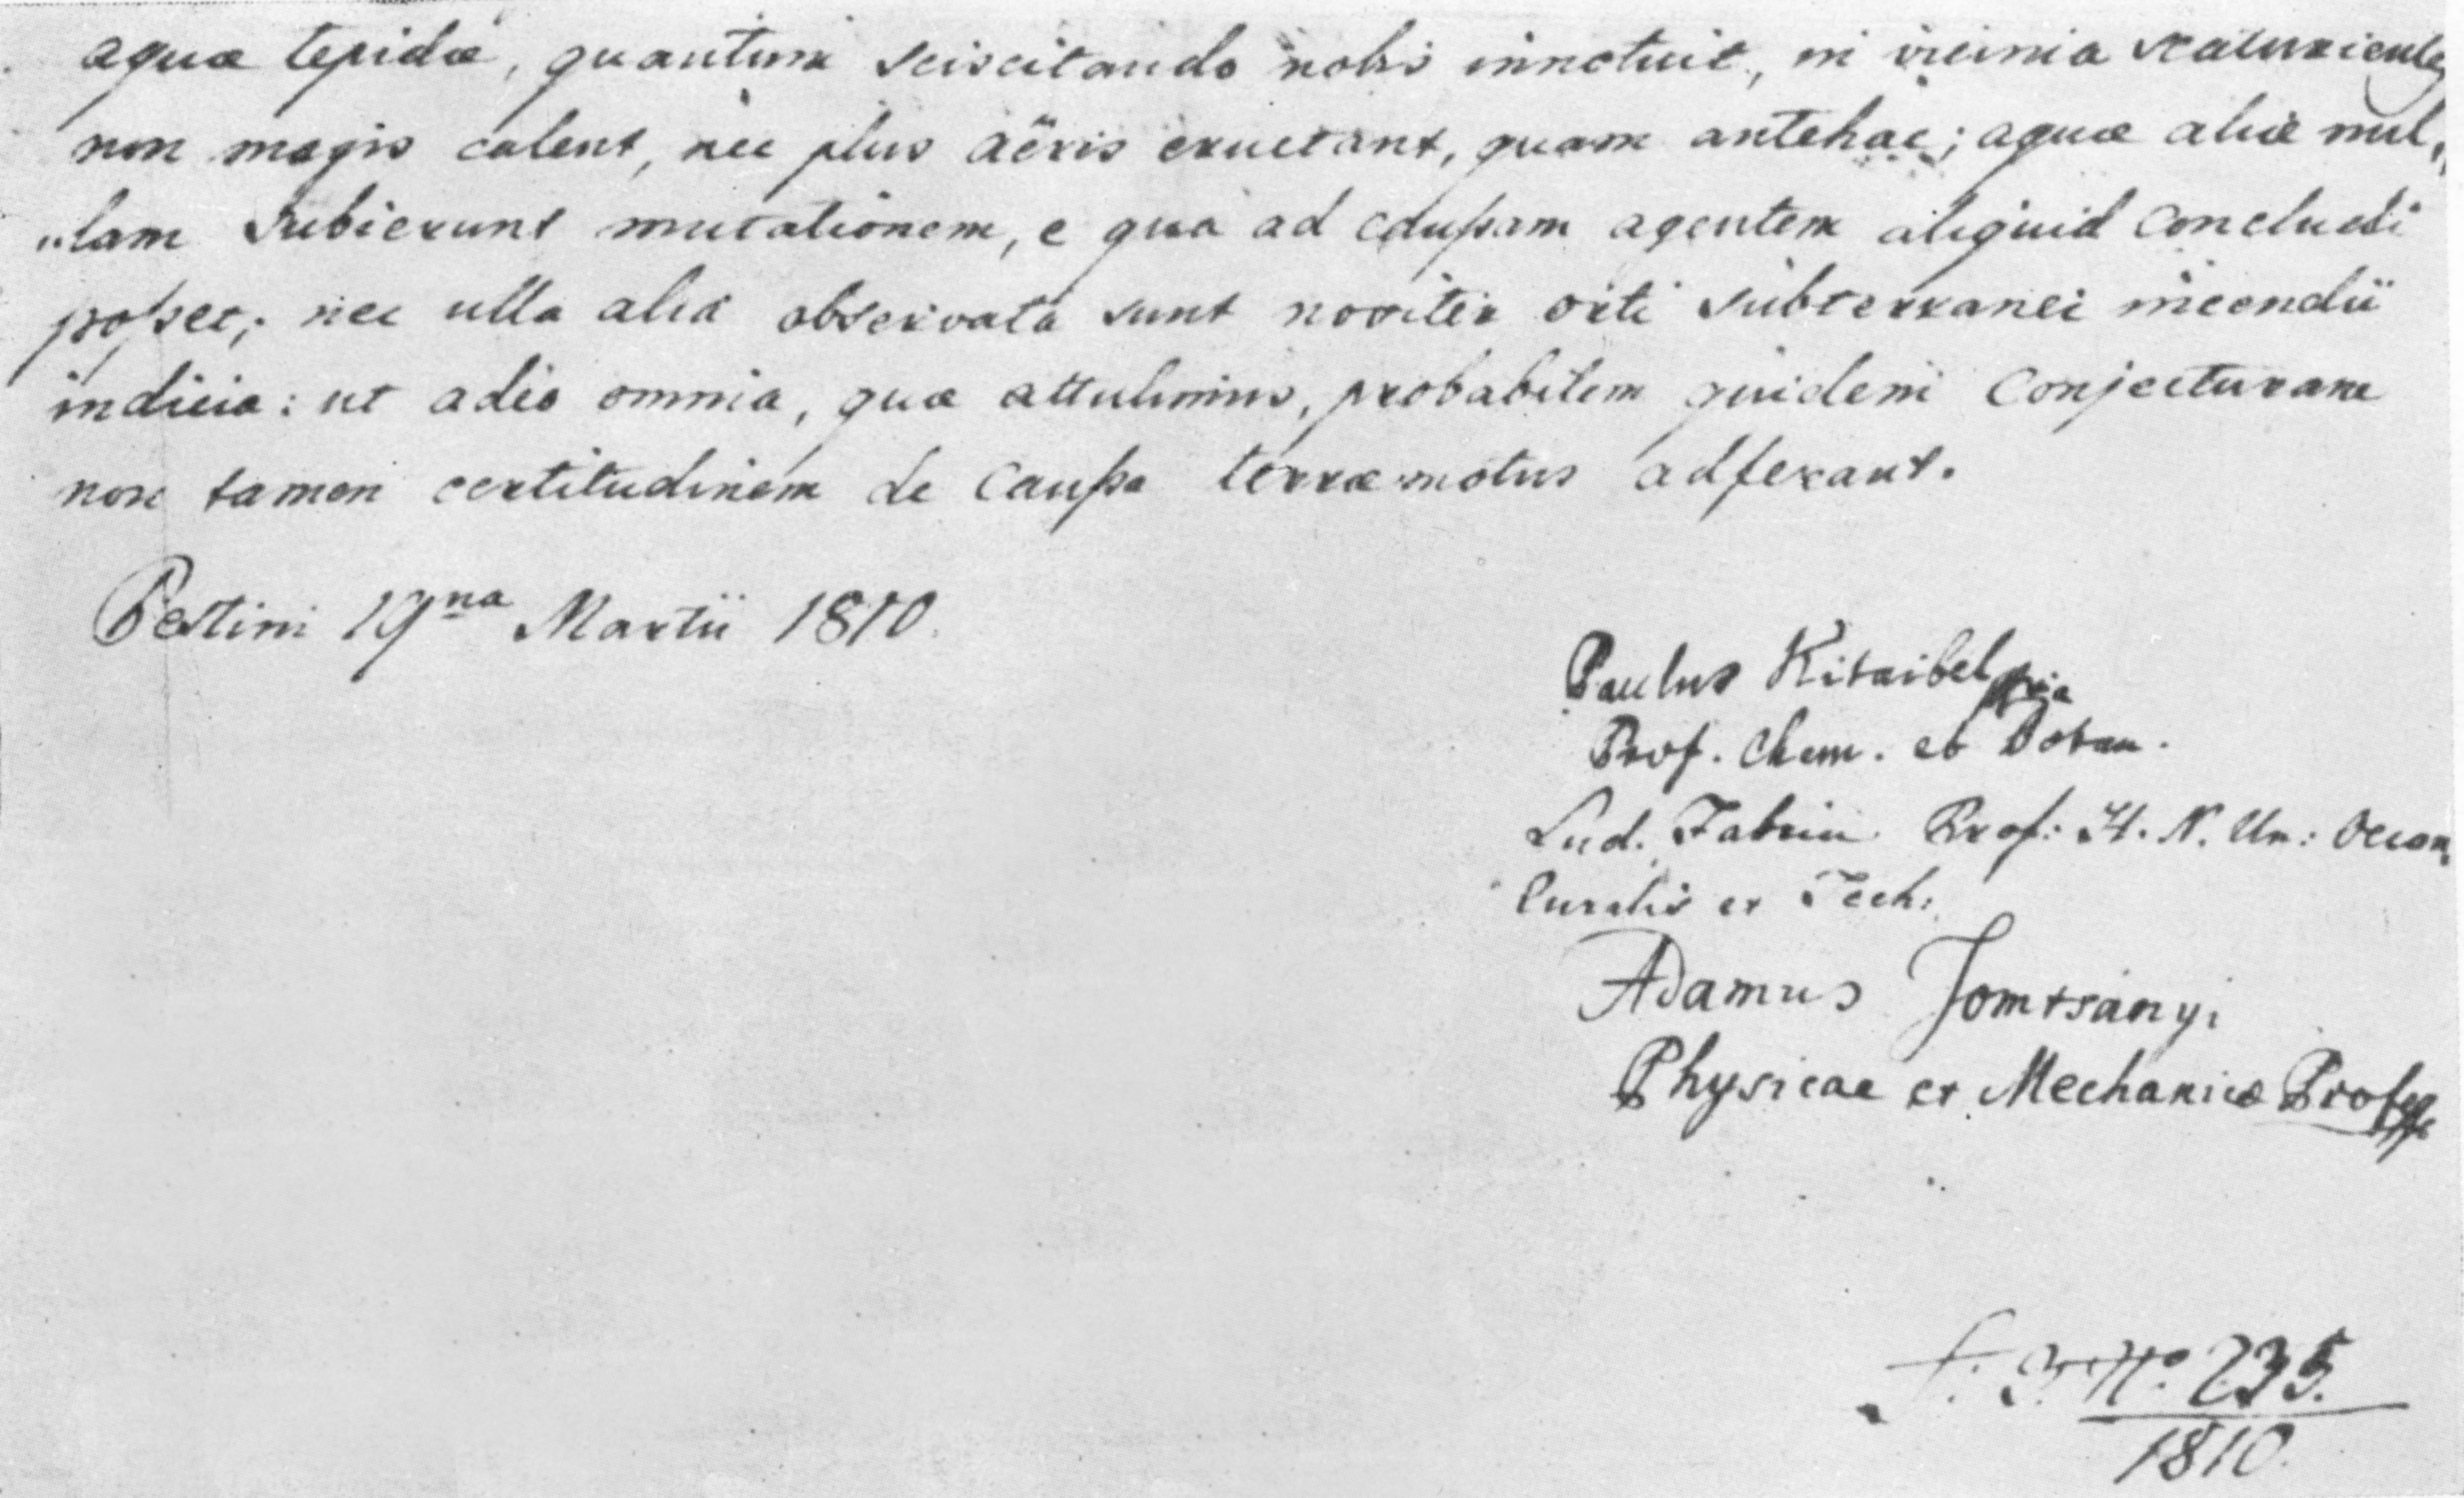 aquæ tepidæ, quantum sciscitando nobis innotuit, in vicinia scaturientes
non magis calent, nec plus aëris eructant, quam antehac; aquæ aliæ nul„
„lam subierunt mutationem, e qua ad caussam agentem aliquid concludi
posset; nec ulla alia observata sunt noviter orti subterranei incendii
indicia: ut adeo omnia, quæ attulimus, probabilem quidem Conjecturam
non tamen certitudinem de Caussa terræmotus adferant.
Pestini 19na Martii 1810.
Paulus Kitaibel
Prof. Chem. et Botan.
Lud. Fabrici Prof: H. N. Un: Oecon.
Ruralis et Tech:
Adamus Tomtsányi
Physicae et Mechanicæ Profess
No. 235.
1810.